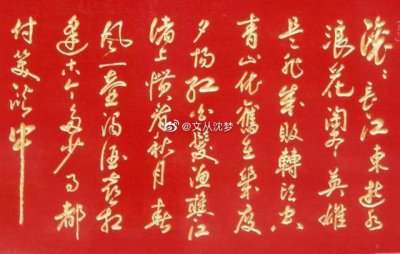 滚〻長江東逝水
浪花淘尽英雄
是非成败轉头空
青山依舊在几度
夕阳红白髮渔樵江
渚上惯看秋月春
風一壶浊酒喜相
逢古今多少事都
付笑谈中
@文从沈梦